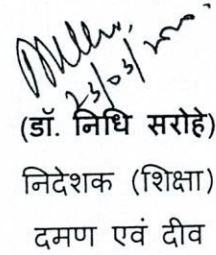 23/03/2020
(डॉ. निधि सरोहे)
निदेशक (शिक्षा)
दमण एवं दीव